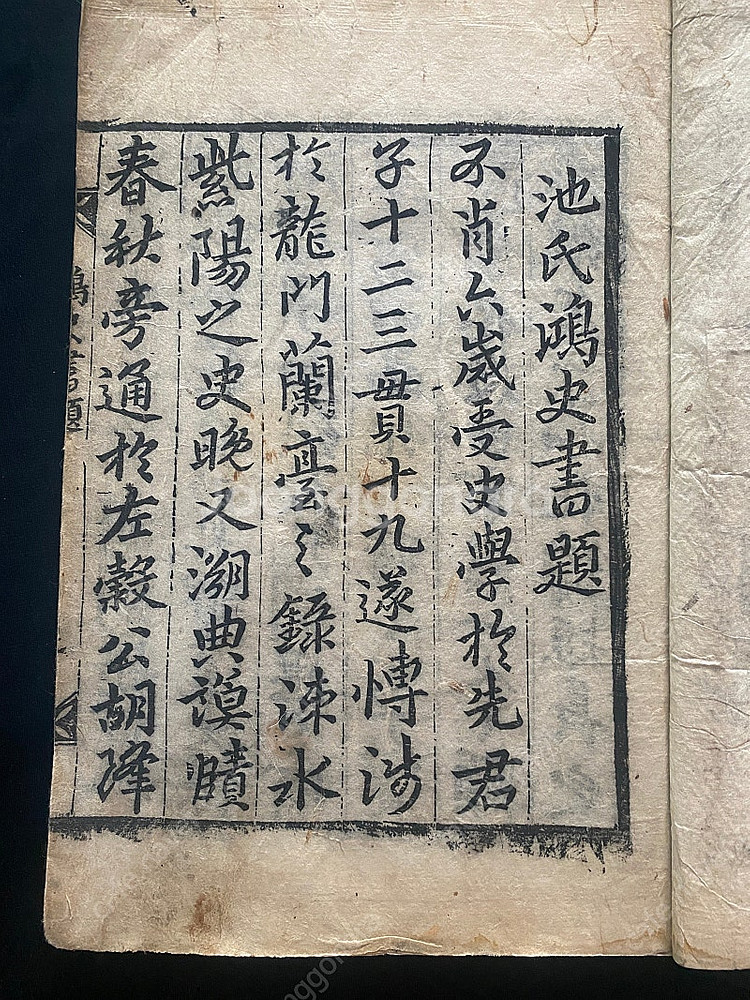 池氏鴻史書題
不肖六歲受史學於先君
子十二三貫十九遂愽涉
於龍門蘭臺之錄涑水
紫陽之史晚又溯典謨賾
春秋旁通於左穀公胡降